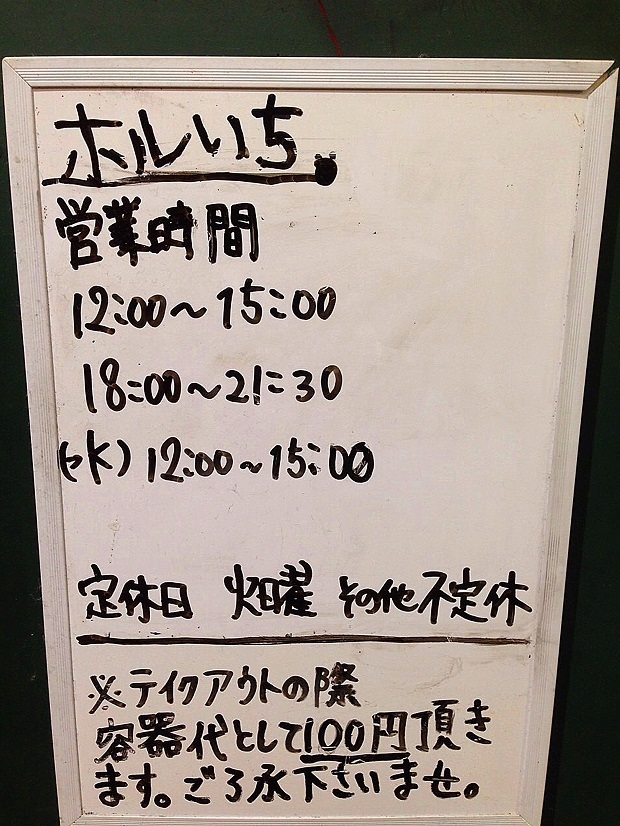 ホルいち
営業時間
12:00~15:00
18:00~21:30
(水) 12:00~15:00
定休日 火曜 その他不定休
※テイクアウトの際
容器代として100円頂き
ます。ごろ承下さいませ。